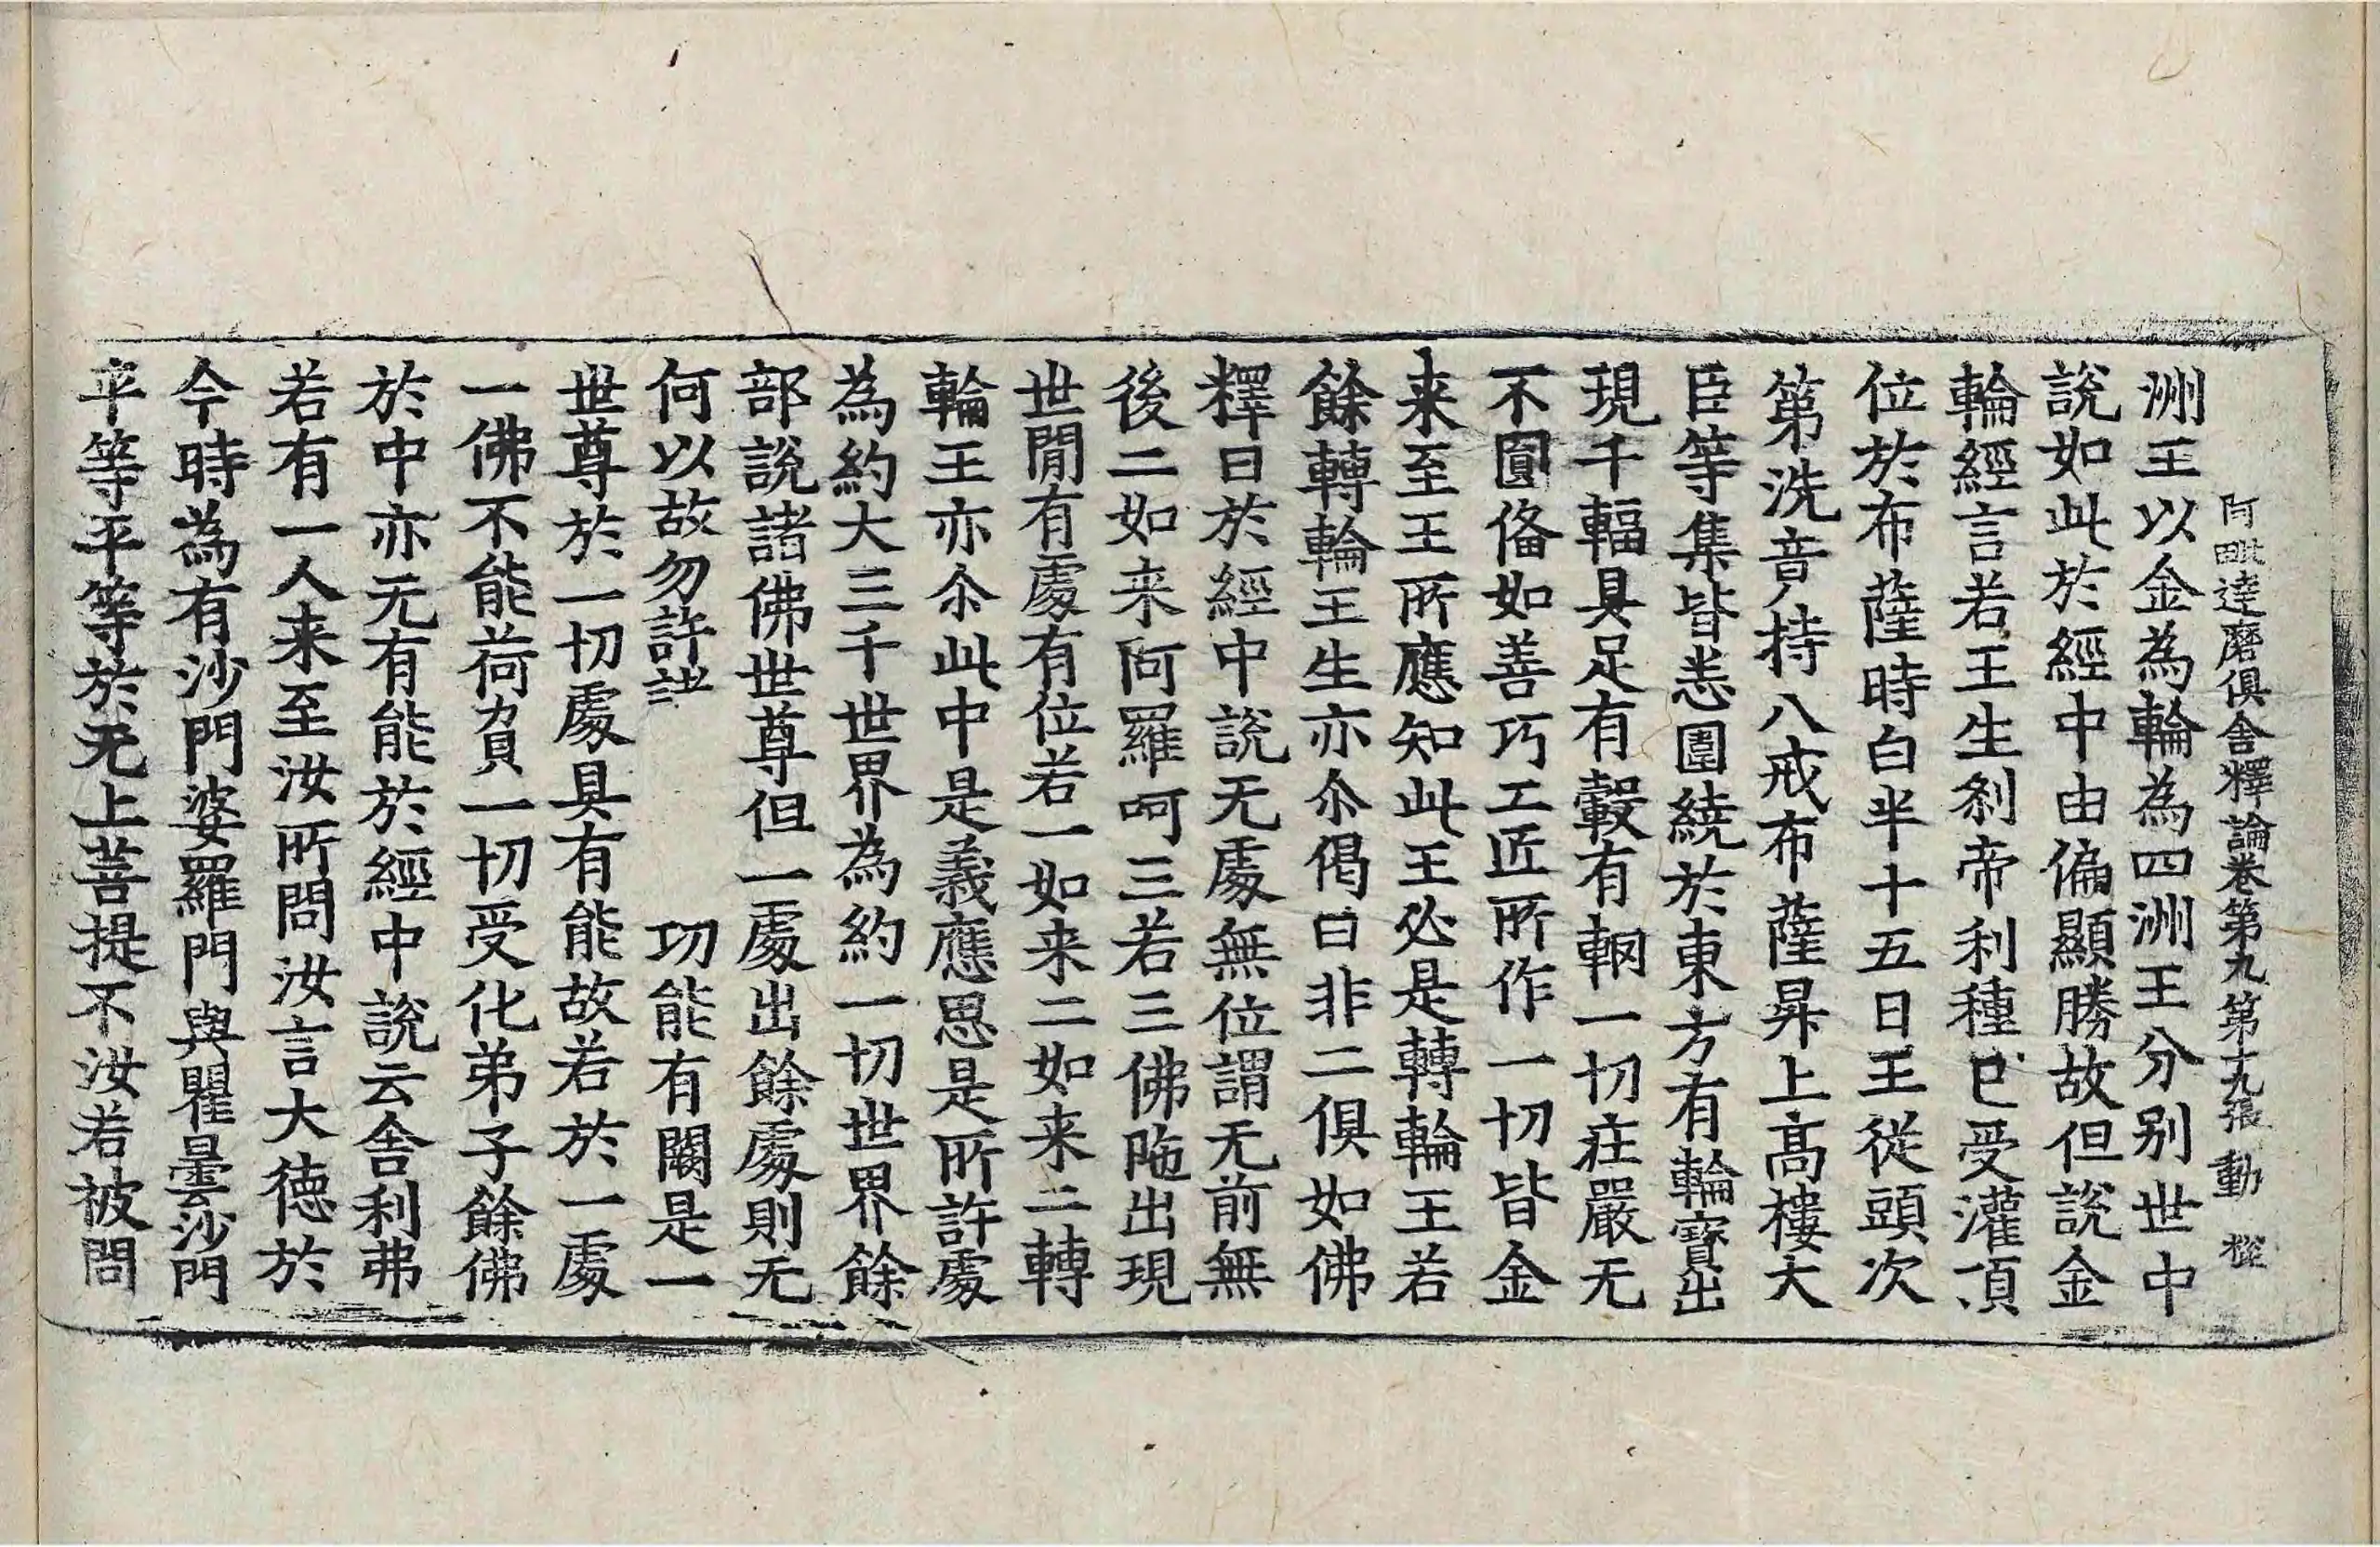 阿毗達磨俱舍釋論卷第九第十九張動
洲王以金為輪為四洲王分別世中
說如此於經中由偏顯勝故但說金
輪經言若王生剎帝利種已受灌頂
位於布薩時白半十五日王從頭次
第洗音持八戒布薩昇上高樓大
臣等集皆恙圍繞於東方有輪寶出
現千輻具足有轂有輞一切莊嚴无
不圓俻如善巧工匠所作一切皆金
来至王所應知此王必是轉輪王若
餘轉輪王生亦尒偈曰非二俱如佛
釋曰於經中說无處無位謂无前無
後二如来阿羅呵三若三佛陁出現
世間有處有位若一如来二如来二轉
輪王亦尒此中是義應思是所許處
為約大三千世界為約一切世界餘
部說諸佛世尊但一處出餘處則无
何以故勿許 功能有閡是一
世尊於一切處具有能故若於一處
一佛不能荷負一切受化弟子餘佛
於中亦无有能於經中說云舍利弗
若有一人来至汝所問汝言大德於
今時為有沙門婆羅門與瞿曇沙門
平等平等於无上菩提不汝若被問